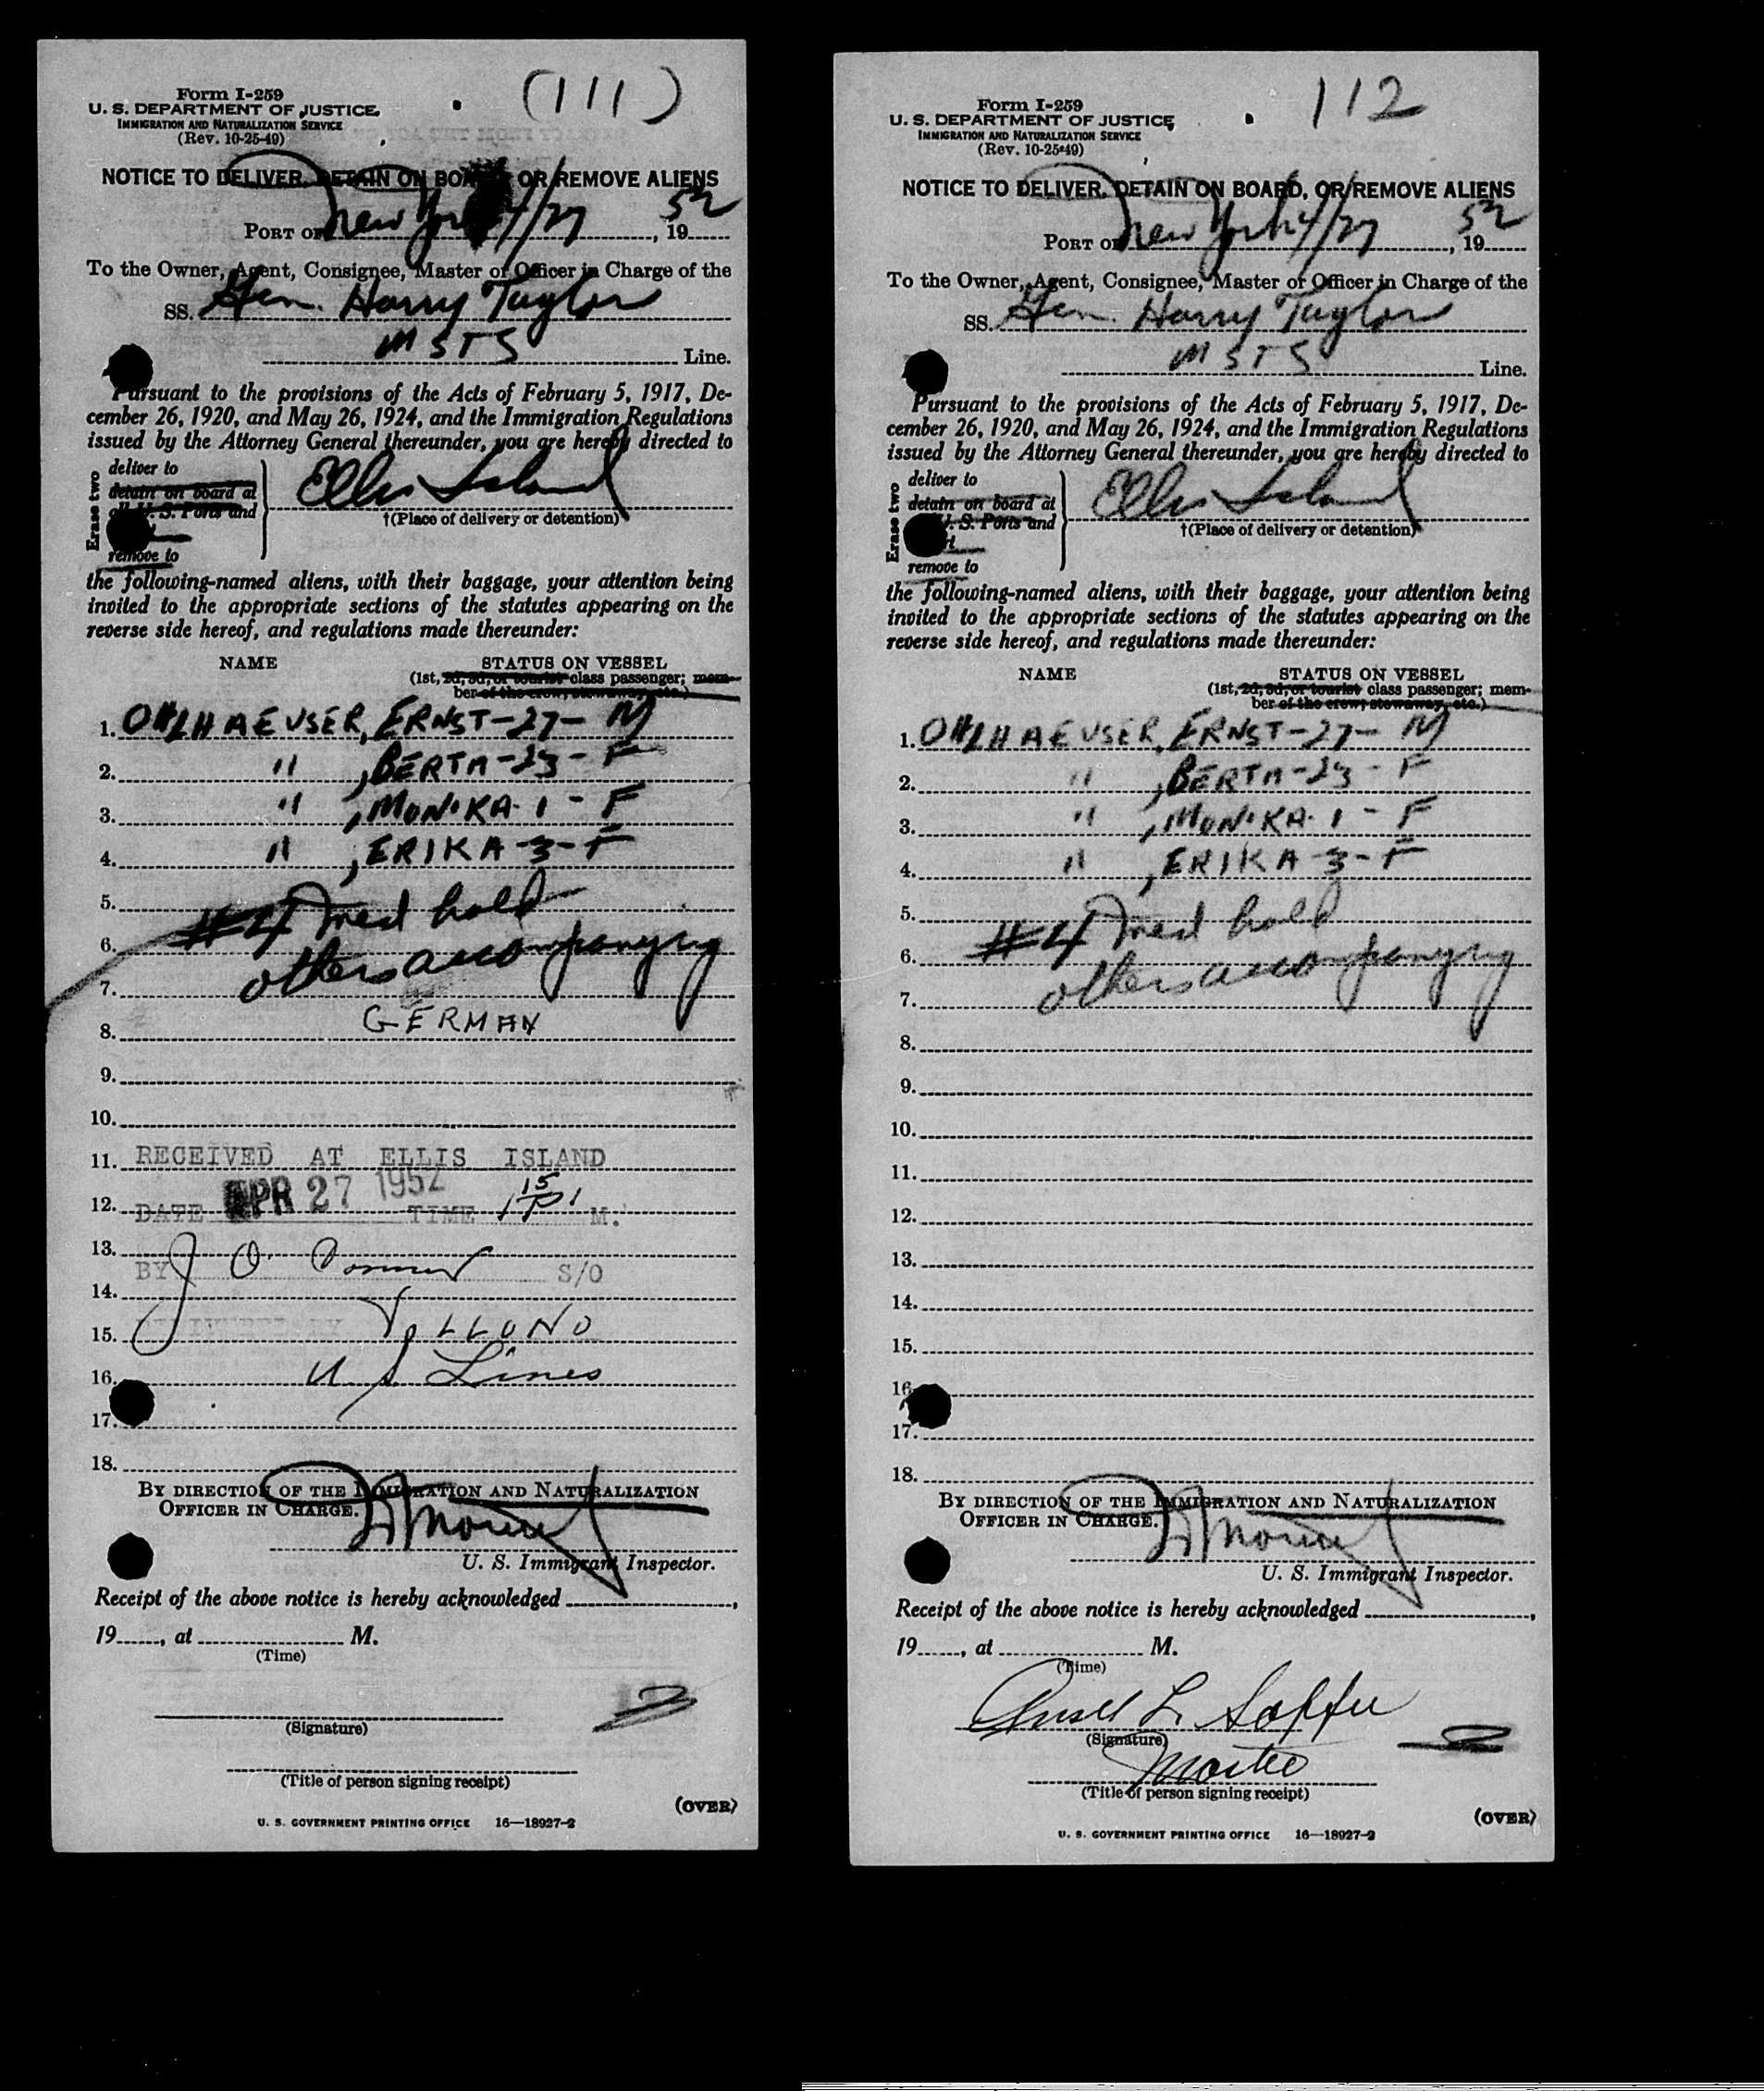 (111)
Form I-259
U. S. DEPARTMENT OF JUSTICE
IMMIGRATION AND NATURALIZATION SERVICE
(Rev. 10-25-49)
NOTICE TO DELIVER, DETAIN ON BOARD, OR REMOVE ALIENS
PORT OF New York 4/27, 1952
To the Owner, Agent, Consignee, Master or Officer in Charge of the
SS. Gen. Harry Taylor
MSTS Line.
Pursuant to the provisions of the Acts of February 5, 1917, De-
cember 26, 1920, and May 26, 1924, and the Immigration Regulations
issued by the Attorney General thereunder, you are hereby directed to
Erase two
deliver to
detain on board at
all U. S. Ports and
remove to
Ellis Island
†(Place of delivery or detention)
the following-named aliens, with their baggage, your attention being
invited to the appropriate sections of the statutes appearing on the
reverse side hereof, and regulations made thereunder:
NAME STATUS ON VESSEL
(1st, 2d, 3d, or tourist class passenger; mem-
ber of the crew, stowaway, etc.)
1. OHLHAEUSER, ERNST-27-M
2. " , BERTA-23-F
3. " , MONIKA-1-F
4. " , ERIKA-3-F
5. #4 med hold
6. others accompanying
7.
8. GERMAN
9.
10.
11. RECEIVED AT ELLIS ISLAND
12. DATE APR 27 1952 TIME 1 15 P M.
13.
BY J O S/O
14.
15.
16. U S Lines
17.
18.
BY DIRECTION OF THE IMMIGRATION AND NATURALIZATION
OFFICER IN CHARGE.
U. S. Immigrant Inspector.
Receipt of the above notice is hereby acknowledged ,
19 , at M.
(Time)
(Signature)
(Title of person signing receipt)
(OVER)
U. S. GOVERNMENT PRINTING OFFICE 16—18927-2
112
Form I-259
U. S. DEPARTMENT OF JUSTICE
IMMIGRATION AND NATURALIZATION SERVICE
(Rev. 10-25-49)
NOTICE TO DELIVER, DETAIN ON BOARD, OR REMOVE ALIENS
PORT OF New York 4/27, 1952
To the Owner, Agent, Consignee, Master or Officer in Charge of the
SS. Gen. Harry Taylor
MSTS Line.
Pursuant to the provisions of the Acts of February 5, 1917, De-
cember 26, 1920, and May 26, 1924, and the Immigration Regulations
issued by the Attorney General thereunder, you are hereby directed to
Erase two
deliver to
detain on board at
U. S. Ports and
remove to
Ellis Island
†(Place of delivery or detention)
the following-named aliens, with their baggage, your attention being
invited to the appropriate sections of the statutes appearing on the
reverse side hereof, and regulations made thereunder:
NAME STATUS ON VESSEL
(1st, 2d, 3d, or tourist class passenger; mem-
ber of the crew, stowaway, etc.)
1. OHLHAEUSER, ERNST-27-M
2. " , BERTA-23-F
3. " , MONIKA-1-F
4. " , ERIKA-3-F
5. #4 med hold
6. others accompanying
7.
8.
9.
10.
11.
12.
13.
14.
15.
16.
17.
18.
BY DIRECTION OF THE IMMIGRATION AND NATURALIZATION
OFFICER IN CHARGE.
U. S. Immigrant Inspector.
Receipt of the above notice is hereby acknowledged ,
19 , at M.
(Time)
L.
(Signature)
(Title of person signing receipt)
(OVER)
U. S. GOVERNMENT PRINTING OFFICE 16—18927-2